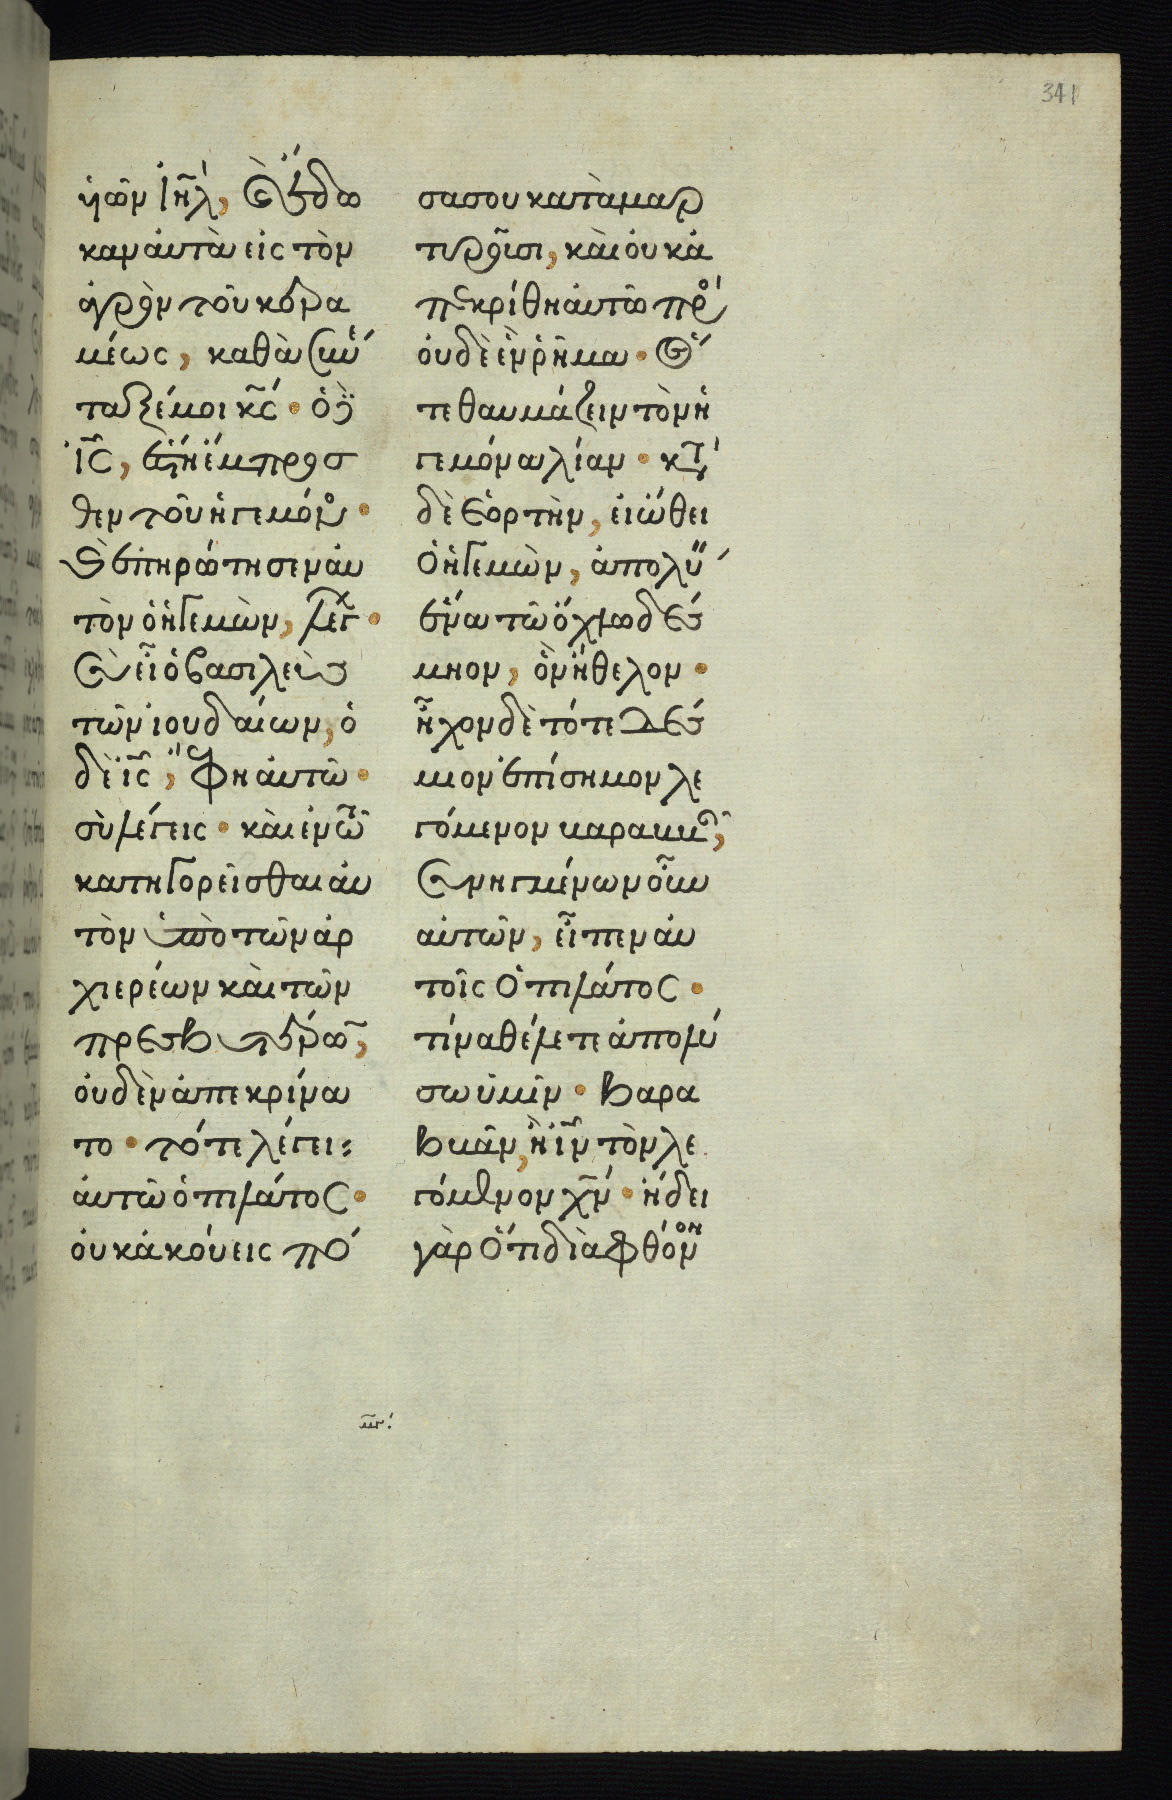 341
ϊῶν ἰη̃λ, καὶ ἔδω
καν ἀυτὰ εἰς τὸν
ἀγρὸν τοῦ κερα
μέως, καθὰ συνέ
ταξέ μοι κς̃ · ὁ δὲ
ἰς̃, ἔστη ἔμπροσ
θεν τοῦ ἡγεμόνος ·
καὶ ἐπηρώτησεν ἀυ
τὸν ὁ ἡγεμὼν, λέγων ·
σὺ εἶ ὁ βασιλεὺς
τῶν ἰουδαίων, ὁ
δὲ ἰς̃, ἔφη ἀυτῶ ·
σὺ λέγεις · καὶ ἐν τῶ
κατηγορεῖσθαι ἀυ
τὸν ὑπὸ τῶν ἀρ
χιερέων καὶ τῶν
πρεσβυτέρων,
ὀυδὲν ἀπεκρίνα
το · τότε λέγει
ἀυτῶ ὁ πιλάτος ·
ὀυκ ἀκούεις πό
σα σου καταμαρ
τυροῦσι, καὶ ὀυκ ἀ
πεκρίθη ἀυτῶ πρὸς
ὀυδὲ ἓν ῥῆμα · ὥς
τε θαυμάζειν τὸν ἡ
γεμόνα λίαν · κατὰ
δὲ ἑορτὴν, εἰώθει
ὁ ἡγεμὼν, ἀπολύειν
ἕνα τῶ ὄχλω δέσ
μιον, ὃν ἤθελον ·
εἶχον δὲ τότε δέσ
μιον ἐπίσημον λε
γόμενον βαραββᾶν,
συνηγμένων οὖν
αὐτῶν, εἶπεν ἀυ
τοῖς ὁ πιλάτος ·
τίνα θέλετε ἀπολύ
σω ὑμῖν · βαρα
ββᾶν, ἢ ἰν̃ τὸν λε
γόμενον χν̃ · ἤδει
γὰρ ὅτι διὰ φθόνον
μγ΄